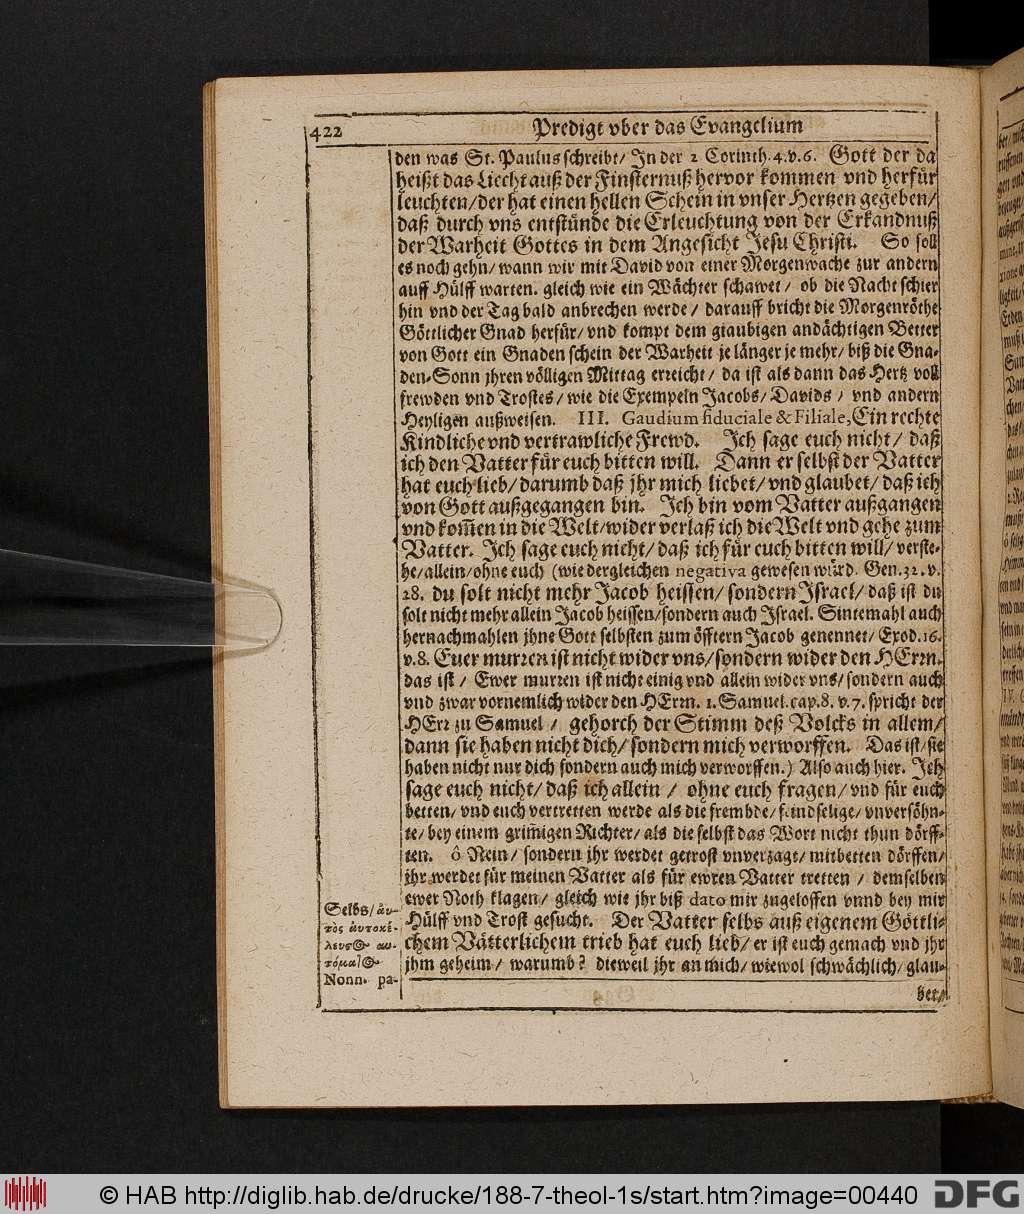 422
Predigt vber das Evangelium
den was St. Paulus schreibt/ In der 2 Corinth. 4. v. 6. Gott der da
heißt das Liecht auß der Finsternuß hervor kommen vnd herfür
leuchten/ der hat einen hellen Schein in vnser Hertzen gegeben/
daß durch vns entstünde die Erleuchtung von der Erkandnuß
der Warheit Gottes in dem Angesicht Jesu Christi. So soll
es noch gehn/ wann wir mit David von einer Morgenwache zur andern
auff Hülff warten. gleich wie ein Wächter schawet/ ob die Nacht schier
hin vnd der Tag bald anbrechen werde/ darauff bricht die Morgenröthe
Göttlicher Gnad herfür/ vnd kompt dem glaubigen andächtigen Better
von Gott ein Gnaden schein der Warheit je länger je mehr/ biß die Gna-
den-Sonn jhren völligen Mittag erreicht/ da ist als dann das Hertz voll
frewden vnd Trostes/ wie die Exempeln Jacobs/ Davids/ vnd andern
Heyligen außweisen. III. Gaudium fiduciale & Filiale, Ein rechte
Kindliche vnd vertrawliche Frewd. Ich sage euch nicht/ daß
ich den Vatter für euch bitten will. Dann er selbst der Vatter
hat euch lieb/ darumb daß jhr mich liebet/ vnd glaubet/ daß ich
von Gott außgegangen bin. Ich bin vom Vatter außgangen
vnd kom̃en in die Welt/ wider verlaß ich die Welt vnd gehe zum
Vatter. Ich sage euch nicht/ daß ich für euch bitten will/ verste-
he/ allein/ ohne euch (wie dergleichen negativa gewesen würd. Gen. 32. v.
28. du solt nicht mehr Jacob heissen/ sondern Israel/ daß ist du
solt nicht mehr allein Jacob heissen/ sondern auch Israel. Sintemahl auch
hernachmahlen jhne Gott selbsten zum öfftern Jacob genennet/ Exod. 16.
v. 8. Euer murren ist nicht wider vns/ sondern wider den HErrn.
das ist/ Ewer murren ist nicht einig vnd allein wider vns/ sondern auch
vnd zwar vornemlich wider den HErrn. 1. Samuel. cap. 8. v. 7. spricht der
HErr zu Samuel/ gehorch der Stimm deß Volcks in allem/
dann sie haben nicht dich/ sondern mich verworffen. Das ist/ sie
haben nicht nur dich sondern auch mich verworffen.) Also auch hier. Ich
sage euch nicht/ daß ich allein/ ohne euch fragen/ vnd für euch
betten/ vnd euch vertretten werde als die frembde/ feindselige/ vnversöhn-
te/ bey einem grim̃igen Richter/ als die selbst das Wort nicht thun dörff-
ten. ô Nein/ sondern jhr werdet getrost vnverzagt/ mitbetten dörffen/
jhr werdet für meinen Vatter als für ewren Vatter tretten/ demselben
ewer Noth klagen/ gleich wie jhr biß dato mir zugeloffen vnnd bey mir
Hülff vnd Trost gesucht. Der Vatter selbs auß eigenem Göttli-
chem Vätterlichem trieb hat euch lieb/ er ist euch gemach vnd jhr
jhm geheim/ warumb? dieweil jhr an mich/ wiewol schwächlich/ glau-
bet/
Selbs/ αὐ-
τὸς αὐτοκέ-
λευσος αυ-
τόματος
Nonn. pa-
© HAB http://diglib.hab.de/drucke/188-7-theol-1s/start.htm?image=00440
DFG